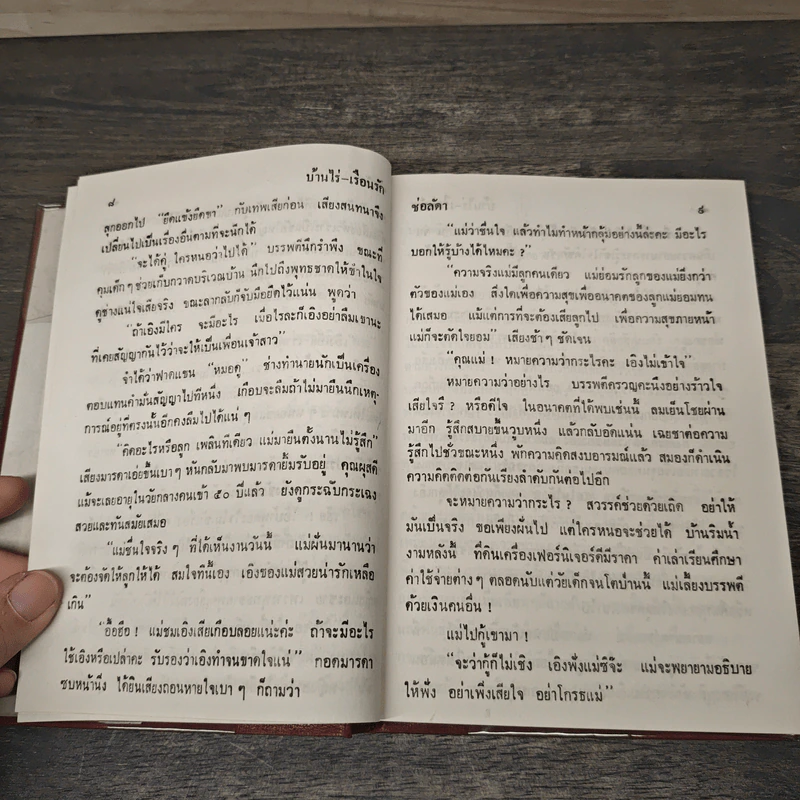 ๘
บ้านไร่-เรือนรัก
ลุกออกไป "ยึดแข้งยึดขา" กับเทพเสียก่อน เสียงสนทนาจึง
เปลี่ยนไปเป็นเรื่องอื่นตามที่จะนึกได้
"จะได้คู่ ใครหนอว่าไปได้" บรรพตีนึกรำพึง ขณะที่
คุมเด็กๆ ช่วยเก็บกวาดบริเวณบ้าน นึกไปถึงพุทธชาดให้ขำในใจ
คู่ช่างแน่ใจเสียจริง ขณะลากลับก็จับมือยึดไว้แน่น พูดว่า
"ถ้าเอิงมีใคร จะมีอะไร เมื่อไรละก็เอิงอย่าลืมเขานะ
ที่เคยสัญญากันไว้ว่าจะให้เป็นเพื่อนเจ้าสาว"
จำได้ว่าฟาดแขน "หมอดู" ช่างทำนายนักเป็นเครื่อง
ตอบแทนคำมั่นสัญญาไปทีหนึ่ง เกือบจะลืมถ้าไม่มายืนนึกเหตุ-
การณ์อยู่ที่ตรงนั้นอีกคงลืมไปได้แน่ ๆ
"คิดอะไรหรือลูก เพลินทีเดียว แม่มายืนตั้งนานไม่รู้สึก"
เสียงมารดาเอ่ยขึ้นเบาๆ หันกลับมาพบมารดายิ้มรับอยู่ คุณผุสดี
แม้จะเลยอายุในวัยกลางคนเข้า ๕๐ ปีแล้ว ยังดูกระฉับกระเฉง
สวยและทันสมัยเสมอ
"แม่ชื่นใจจริง ๆ ที่ได้เห็นงานวันนี้ แม่ฝันมานานว่า
จะต้องจัดให้ลูกให้ได้ สมใจทีนี้เอง เอิงของแม่สวยน่ารักเหลือ
เกิน"
"อื้อฮือ ! แม่ชมเอิงเสียเกือบลอยแน่ะค่ะ ถ้าจะมีอะไร
ใช้เอิงหรือเปล่าคะ รับรองว่าเอิงทำจนขาดใจแน่" กอดมารดา
ซบหน้านิ่ง ได้ยินเสียงถอนหายใจเบา ๆ ก็ถามว่า
ช่อลัดา
๙
"แม่ว่าชื่นใจ แล้วทำไมทำหน้ากลุ้มอย่างนี้ล่ะคะ มีอะไร
บอกให้รู้บ้างได้ไหมคะ ?"
"ความจริงแม่มีลูกคนเดียว แม่ย่อมรักลูกของแม่ยิ่งกว่า
ตัวของแม่เอง สิ่งใดเพื่อความสุขเพื่ออนาคตของลูกแม่ยอมทน
ได้เสมอ แม้แต่การที่จะต้องเสียลูกไป เพื่อความสุขภายหน้า
แม่ก็จะตัดใจยอม" เสียงช้าๆ ชัดเจน
"คุณแม่ ! หมายความว่ากระไรคะ เอิงไม่เข้าใจ"
หมายความว่าอย่างไร บรรพตีครวญคะนึงอย่างร้าวใจ
เสียใจรึ ? หรือดีใจ ในอนาคตที่ได้พบเช่นนี้ ลมเย็นโชยผ่าน
มาอีก รู้สึกสบายขึ้นวูบหนึ่ง แล้วกลับอัดแน่น เฉยชาต่อความ
รู้สึกไปชั่วขณะหนึ่ง พักความคิดสงบอารมณ์แล้ว สมองก็ดำเนิน
ความคิดติดต่อกันเรียงลำดับกันต่อไปอีก
จะหมายความว่ากระไร ? สวรรค์ช่วยด้วยเถิด อย่าให้
มันเป็นจริง ขอเพียงฝันไป แต่ใครหนอจะช่วยได้ บ้านริมน้ำ
งามหลังนี้ ที่ดินเครื่องเฟอร์นิเจอร์ดีมีราคา ค่าเล่าเรียนศึกษา
ค่าใช้จ่ายต่างๆ ตลอดนับแต่วัยเด็กจนโตป่านนี้ แม่เลี้ยงบรรพตี
ด้วยเงินคนอื่น !
แม่ไปกู้เขามา !
"จะว่ากู้ก็ไม่เชิง เอิงฟังแม่ซิจ๊ะ แม่จะพยายามอธิบาย
ให้ฟัง อย่าเพิ่งเสียใจ อย่าโกรธแม่"